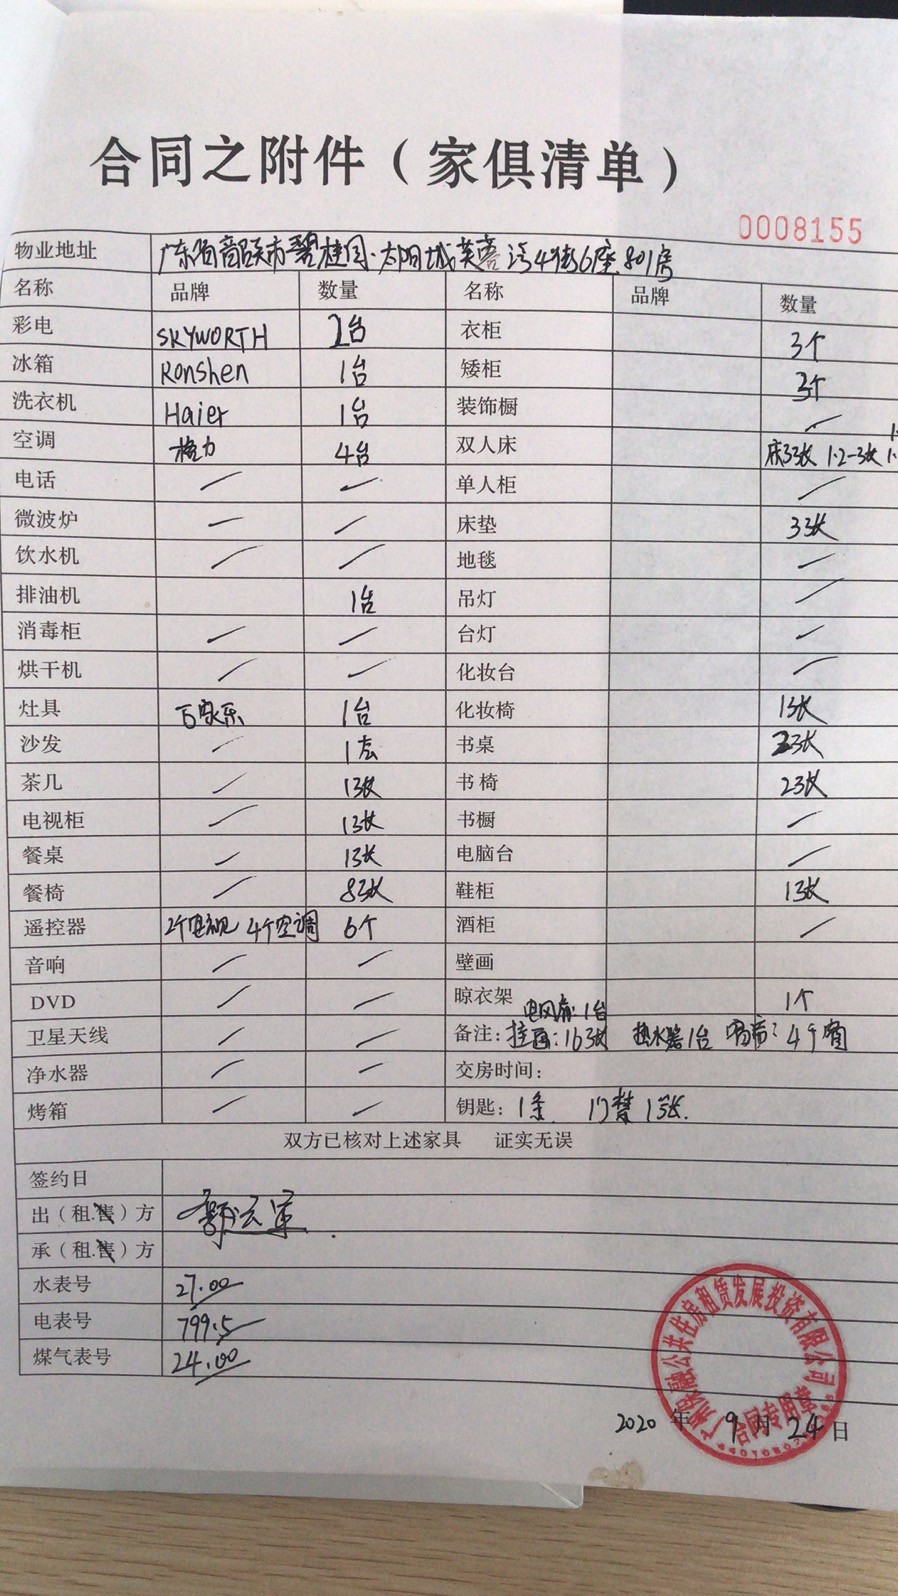 合同之附件（家俱清单）
0008155
物业地址 广东省韶关市碧桂园·太阳城芙蓉湾4街6座801房
名称 品牌 数量 名称 品牌 数量
彩电 SKYWORTH 2台 衣柜 3个
冰箱 Ronshen 1台 矮柜 3个
洗衣机 Haier 1台 装饰橱 /
空调 格力 4台 双人床 床3张 1.2-3张
电话 / / 单人柜 /
微波炉 / / 床垫 3张
饮水机 / / 地毯 /
排油机 1台 吊灯 /
消毒柜 / / 台灯 /
烘干机 / / 化妆台 /
灶具 百家乐 1台 化妆椅 1张
沙发 / 1套 书桌 3张
茶几 / 1张 书椅 2张
电视柜 / 1张 书橱 /
餐桌 / 1张 电脑台 /
餐椅 / 8张 鞋柜 1张
遥控器 2个电视 4个空调 6个 酒柜 /
音响 / / 壁画
DVD / / 晾衣架 1个
电风扇:1台
卫星天线 / / 备注: 挂画:16张 热水器1台 窗帘:4个窗
净水器 / / 交房时间:
烤箱 / / 钥匙: 1条 门禁1张.
双方已核对上述家具 证实无误
签约日
出（租.售）方
承（租.售）方
水表号 27.00
电表号 799.5
煤气表号 24.00
公共住房租赁发展投资有限公司
合同专用章
2020 年 9 月 24 日